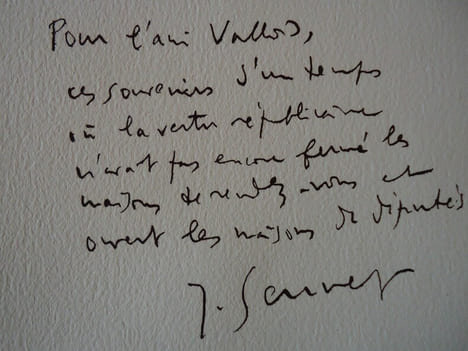 Pour l'ami Vallois,
ces souvenirs d'un temps
où la vertu républicaine
n'avait pas encore fermé les
maisons de rendez-vous et
ouvert les maisons de députés
J. Sauvet